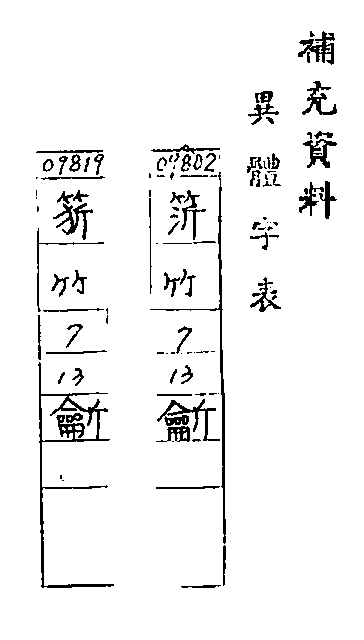 補充資料
異體字表
09802
竹
7
13
䶳
09819
竹
7
13
䶳